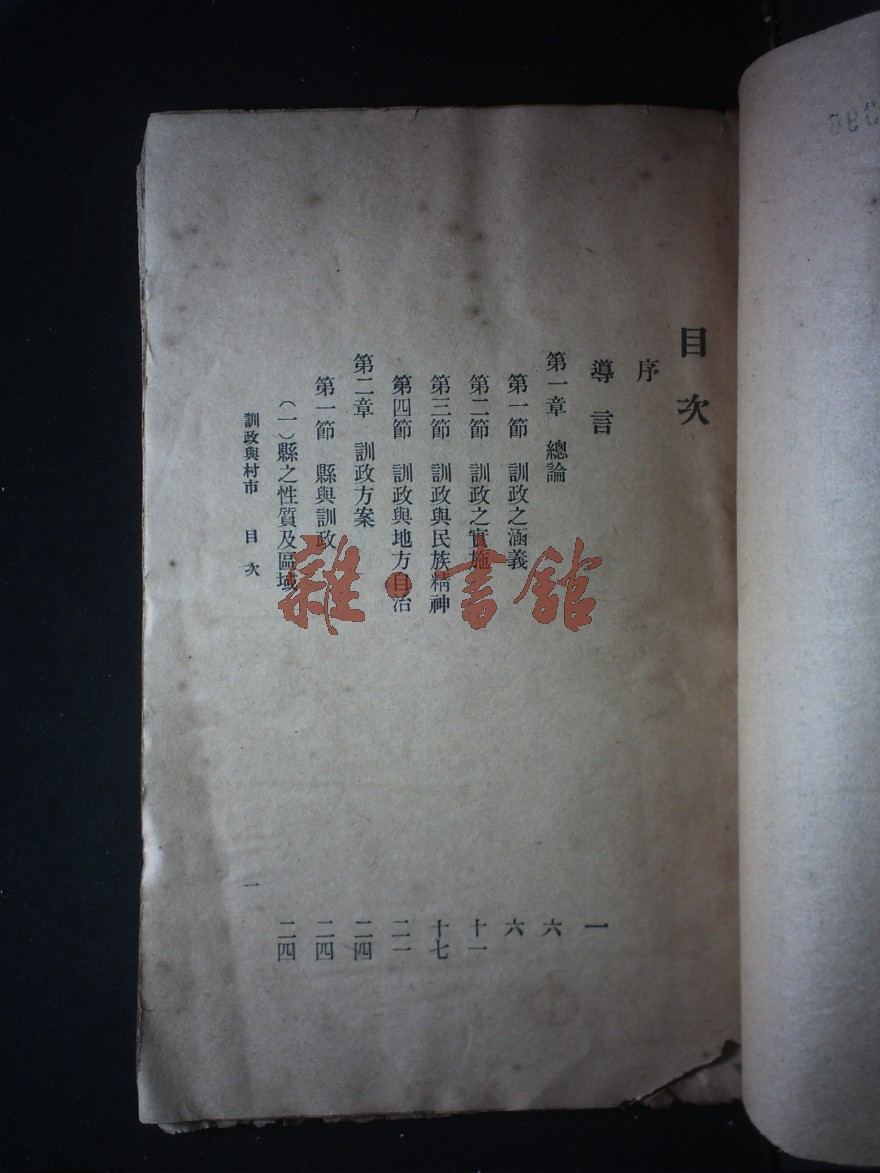 目次
序
導言 一
第一章 總論 六
第一節 訓政之涵義 六
第二節 訓政之實施 十一
第三節 訓政與民族精神 十七
第四節 訓政與地方自治 二一
第二章 訓政方案 二四
第一節 縣與訓政 二四
（一）縣之性質及區域 二四
訓政與村市 目次 一
雜·書館